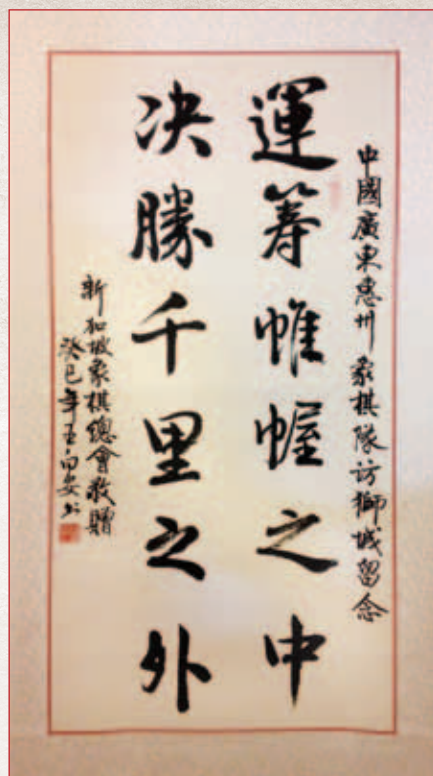 中國廣東惠州象棋隊訪獅城留念
運筹帷幄之中
决勝千里之外
新加坡象棋總會敬贈
癸巳年王向安书